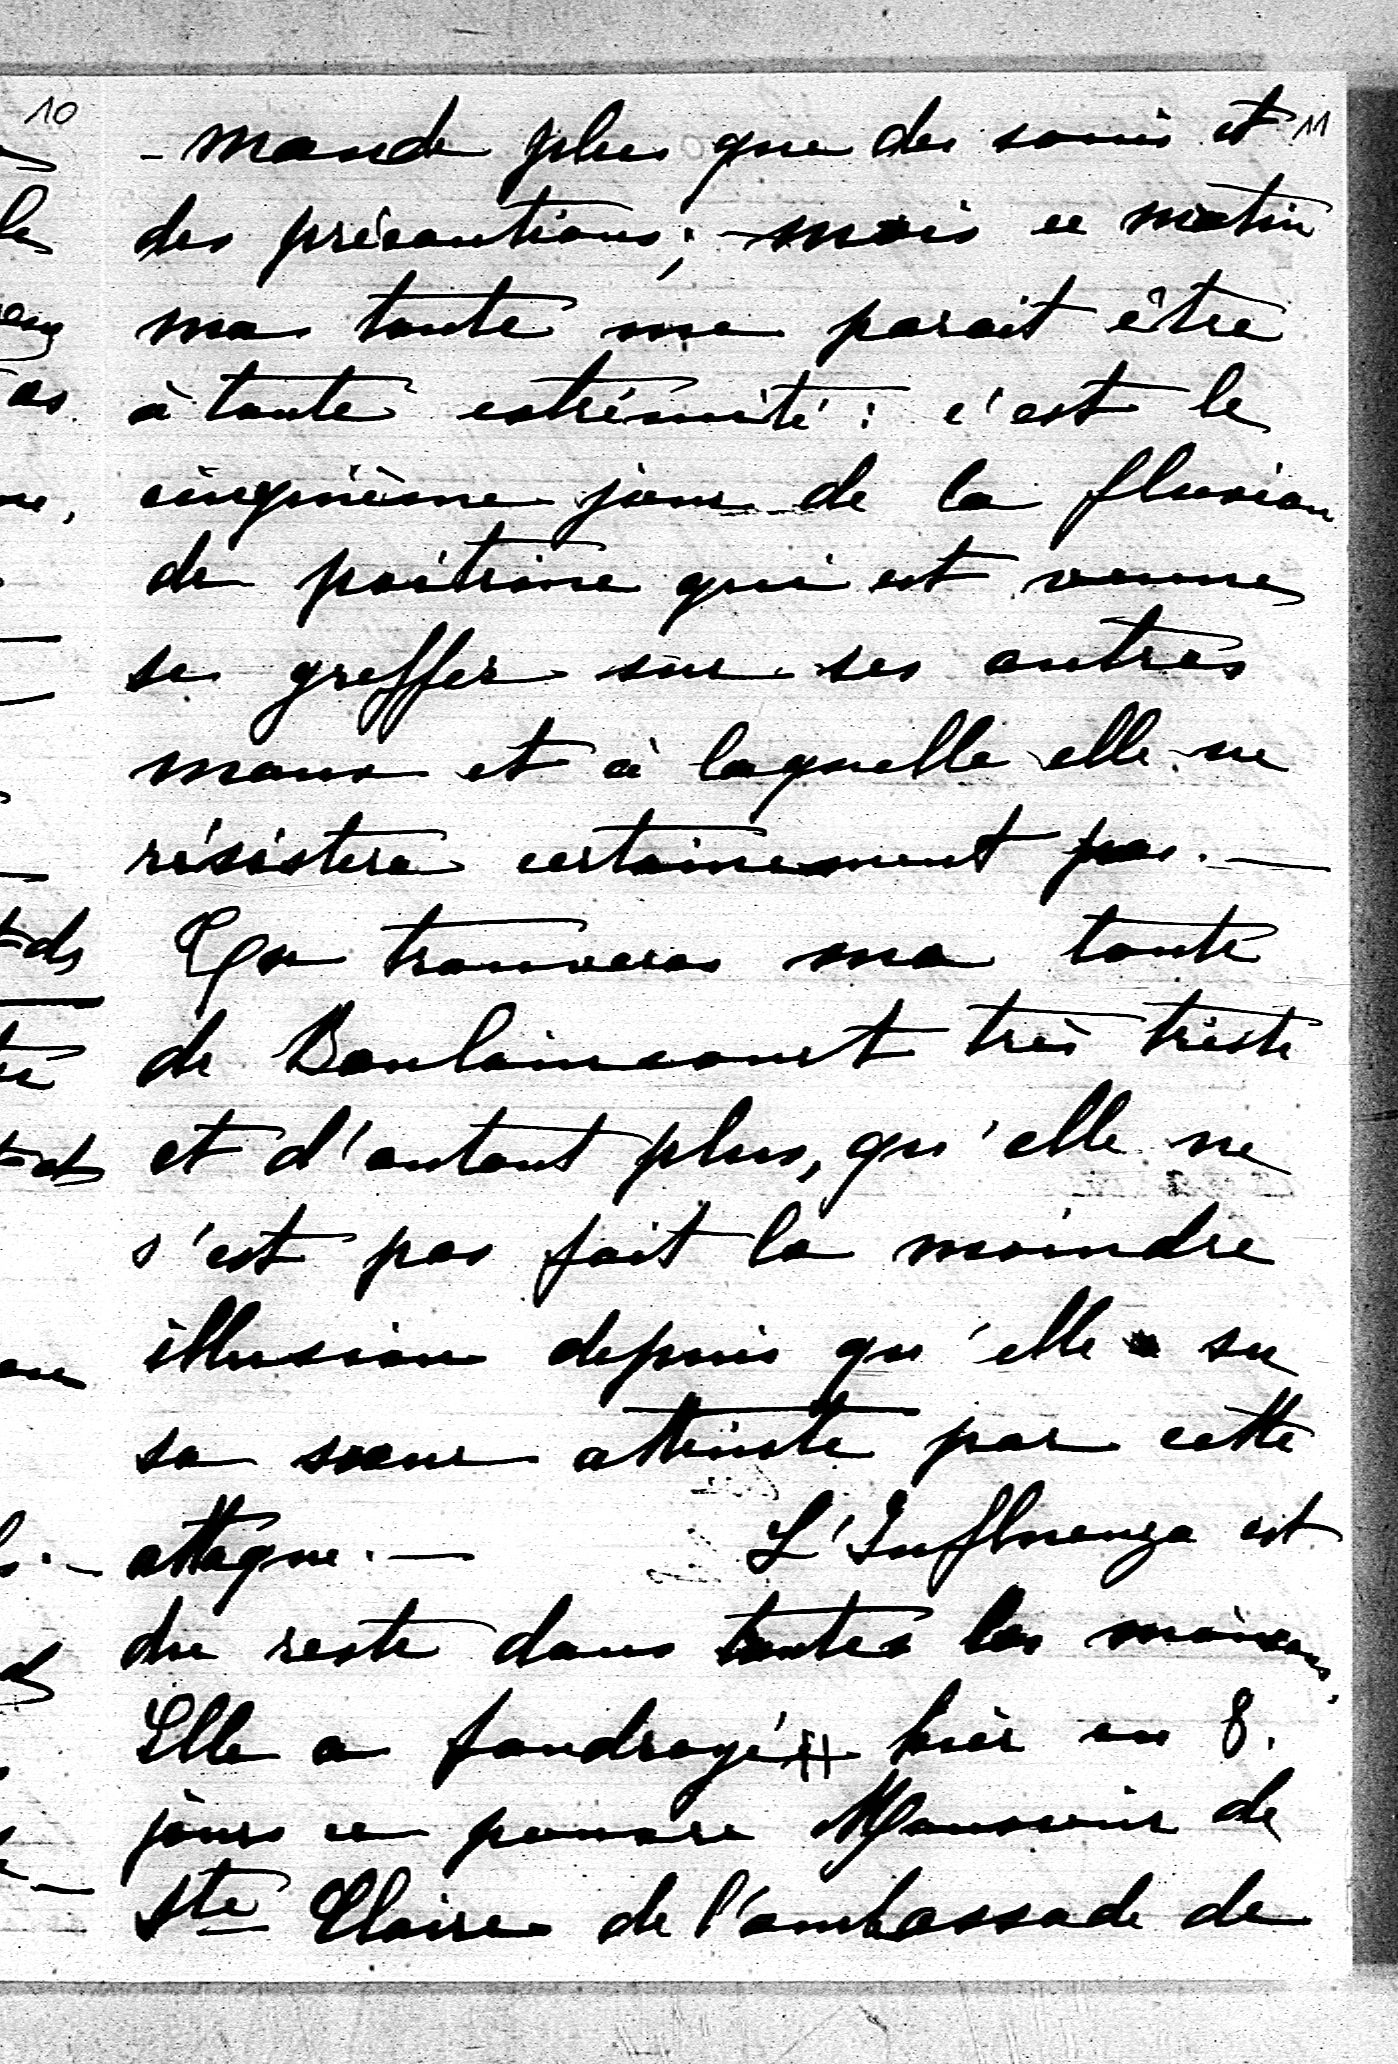 10
11
- mande plus que des soins et
des précautions; mais ce matin
ma tante me parait être
à toute extrémité : c'est le
cinquième jour de la fluxion
de poitrine qui est venue
se greffer sur ses autres
maux et à laquelle elle ne
résistera certainement pas. —
Tu trouveras ma tante
de Boulaincourt très triste
et d'autant plus, qu'elle ne
s'est pas fait la moindre
illusion depuis qu'elle a su
sa sœur atteinte par cette
attaque. — L'Influenza est
du reste dans toutes les maisons.
Elle a foudroyé hier en 8.
jours ce pauvre Mansuin de
Ste Claire de l'ambassade de